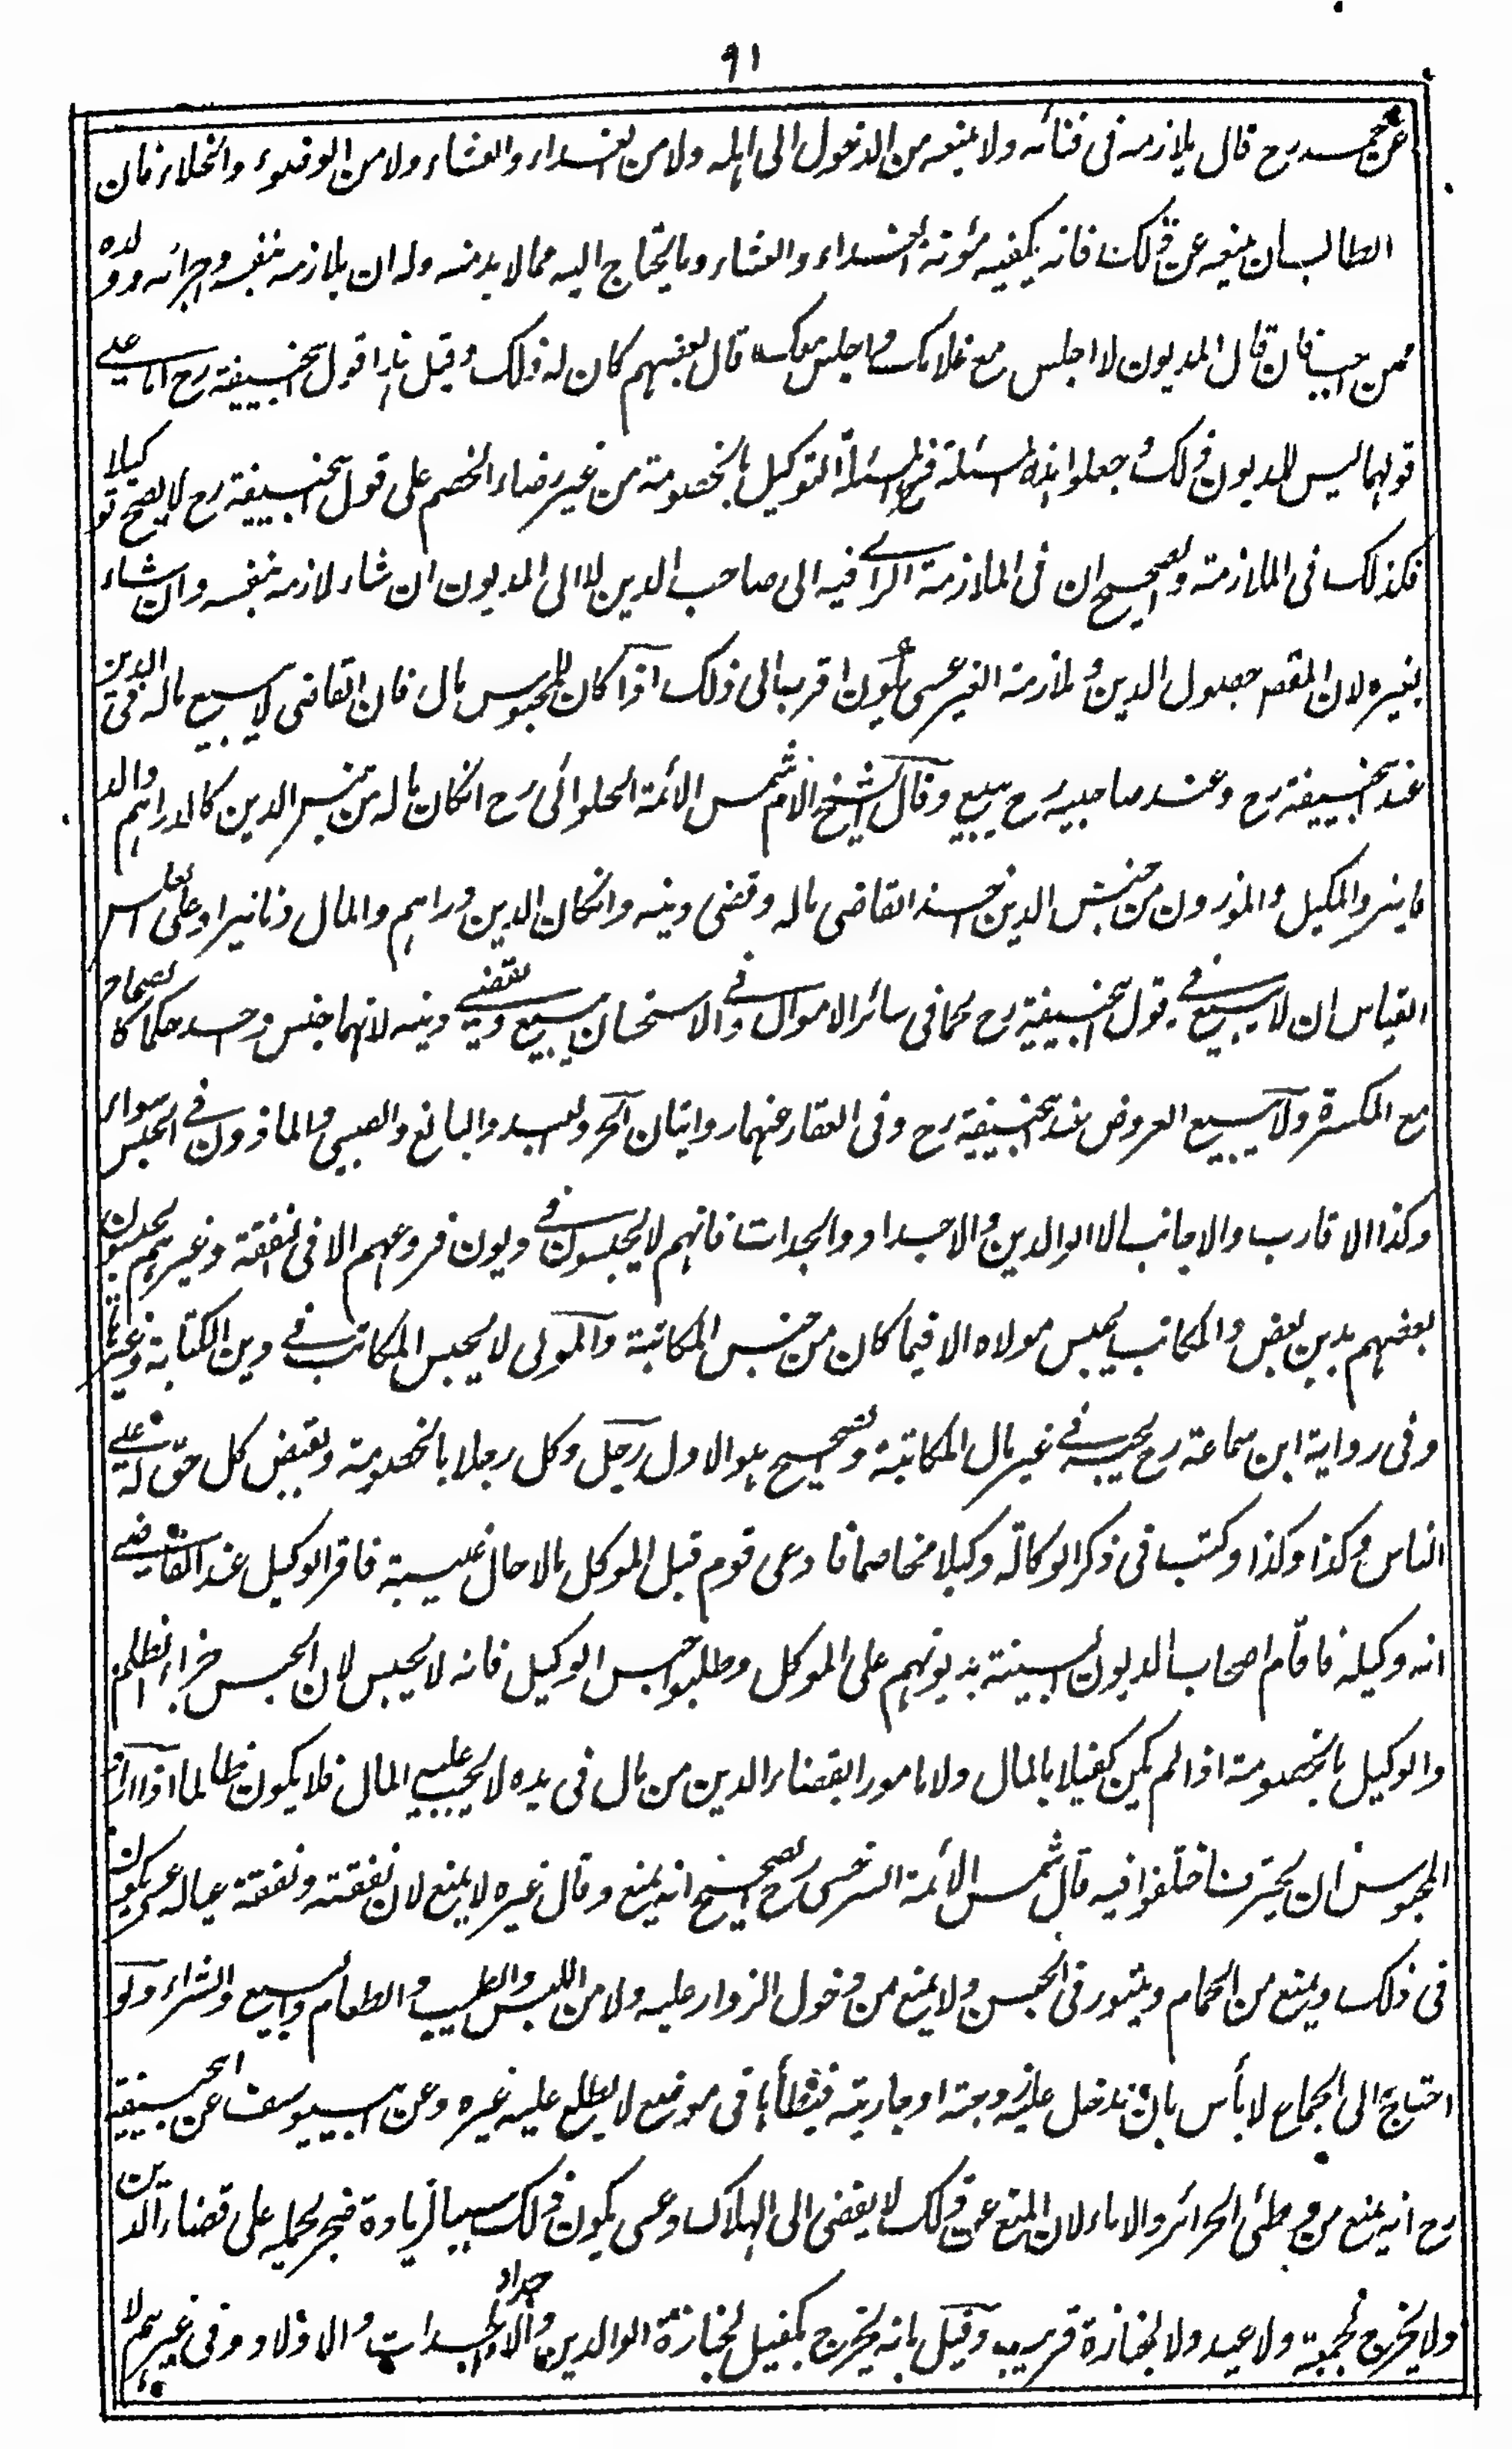 ٩١
عن محمد رح قال يلازمه فى فنائه ولا يمنعه من الدخول الى اهله ولا من الغداء والعشاء ولا من الوضوء والخلاء فان
الطالب ان يمنعه عن ذلك فانه يكفيه مؤنة الغداء والعشاء وما يحتاج اليه مما لا بد منه وله ان يلازمه بنفسه واجرائه وولده
ممن احب فان قال المديون لا اجلس مع غلامك واجلس معك قال بعضهم كان له ذلك وقيل هذا قول ابيحنيفة رح اما على
قولهما ليس للمديون ذلك جعلوا هذه المسئلة فرع لمسئلة التوكيل بالخصومة من غير رضاء الخصم على قول ابيحنيفة رح لا يصح توكيلا
فكذلك فى الملازمة والصحيح ان فى الملازمة الراى فيه الى صاحب الدين لا الى المديون ان شاء لازمه بنفسه وان شاء
بغيره لان المقصد حصول الدين وملازمة الغير عسى يكون اقرب الى ذلك اذا كان للمحبوس مال فان القاضى لا يبيع ماله فى الدين
عند ابيحنيفة رح وعند صاحبيه رح يبيع وقال الشيخ الامام شمس الائمة الحلوائى رح انكان ماله من جنس الدين كالدراهم والد
نانير والمكيل والموزون من جنس الدين اخذ القاضى ماله وقضى دينه وانكان الدين دراهم والمال دنانير او على العكس
القياس ان لا يبيع فى قول ابيحنيفة رح كما فى سائر الاموال وفى الاستحسان يبيع ويقضى دينه لانهما جنس واحد حكما كالصحاح
مع المكسرة ولا يبيع العروض عند ابيحنيفة رح وفى العقار عنهما روايتان الحر والعبد والبالغ والصبى والماذون فى الحبس سواء
وكذا الاقارب والاجانب الا الوالدين والاجداد والجدات فانهم لا يحبسون فى ديون فروعهم الا فى النفقة وغيرهم يحبسون
بعضهم بدين بعض والمكاتب يحبس مولاه الا فيما كان من جنس المكاتبة والمولى لا يحبس المكاتب فى دين الكتابة وغيرها
وفى رواية ابن سماعة رح يحبسه فى غير مال المكاتبة والصحيح هو الاول رجل وكل رجلا بالخصومة وبقبض كل حق له على
الناس وكذا وكذا وكتب فى ذكر الوكالة وكيلا مخاصما فادعى قوم قبل الموكل مالا حال غيبته فاقر الوكيل عند القاضى
انه وكيله فاقام اصحاب الديون البينة بديونهم على الموكل وطلبوا حبس الوكيل فانه لا يحبس لان الحبس جزاء الظلم
والوكيل بالخصومة اذا لم يكن كفيلا بالمال ولا مامورا بقضاء الدين من مال فى يده لا يجب عليه المال فلا يكون ظالما اذا اراد
المحبوس ان يحترف اختلفوا فيه قال شمس الائمة السرخسى رح الصحيح انه يمنع وقال غيره لا يمنع لان نفقته ونفقة عياله عسى يكون
فى ذلك ويمنع من الحمام ويتنور فى الحبس ولا يمنع من دخول الزوار عليه ولا من اللبس والطيب والطعام والبيع والشراء ولو
احتاج الى الجماع لا بأس بان تدخل عليه زوجته او جاريته فيطأها فى موضع لا يطلع عليه غيره وعن ابييوسف عن ابيحنيفة
رح انه يمنع من وطئ الحرائر والاماء لان المنع عن ذلك لا يفضى الى الهلاك وعسى يكون ذلك سببا لزيادة ضجر يحمله على قضاء الدين
ولا يخرج لجمعة ولا عيد ولا لجنازة قريب وقيل بانه يخرج بكفيل لجنازة الوالدين والاجداد والجدات والاولاد وفى غيرهم لا